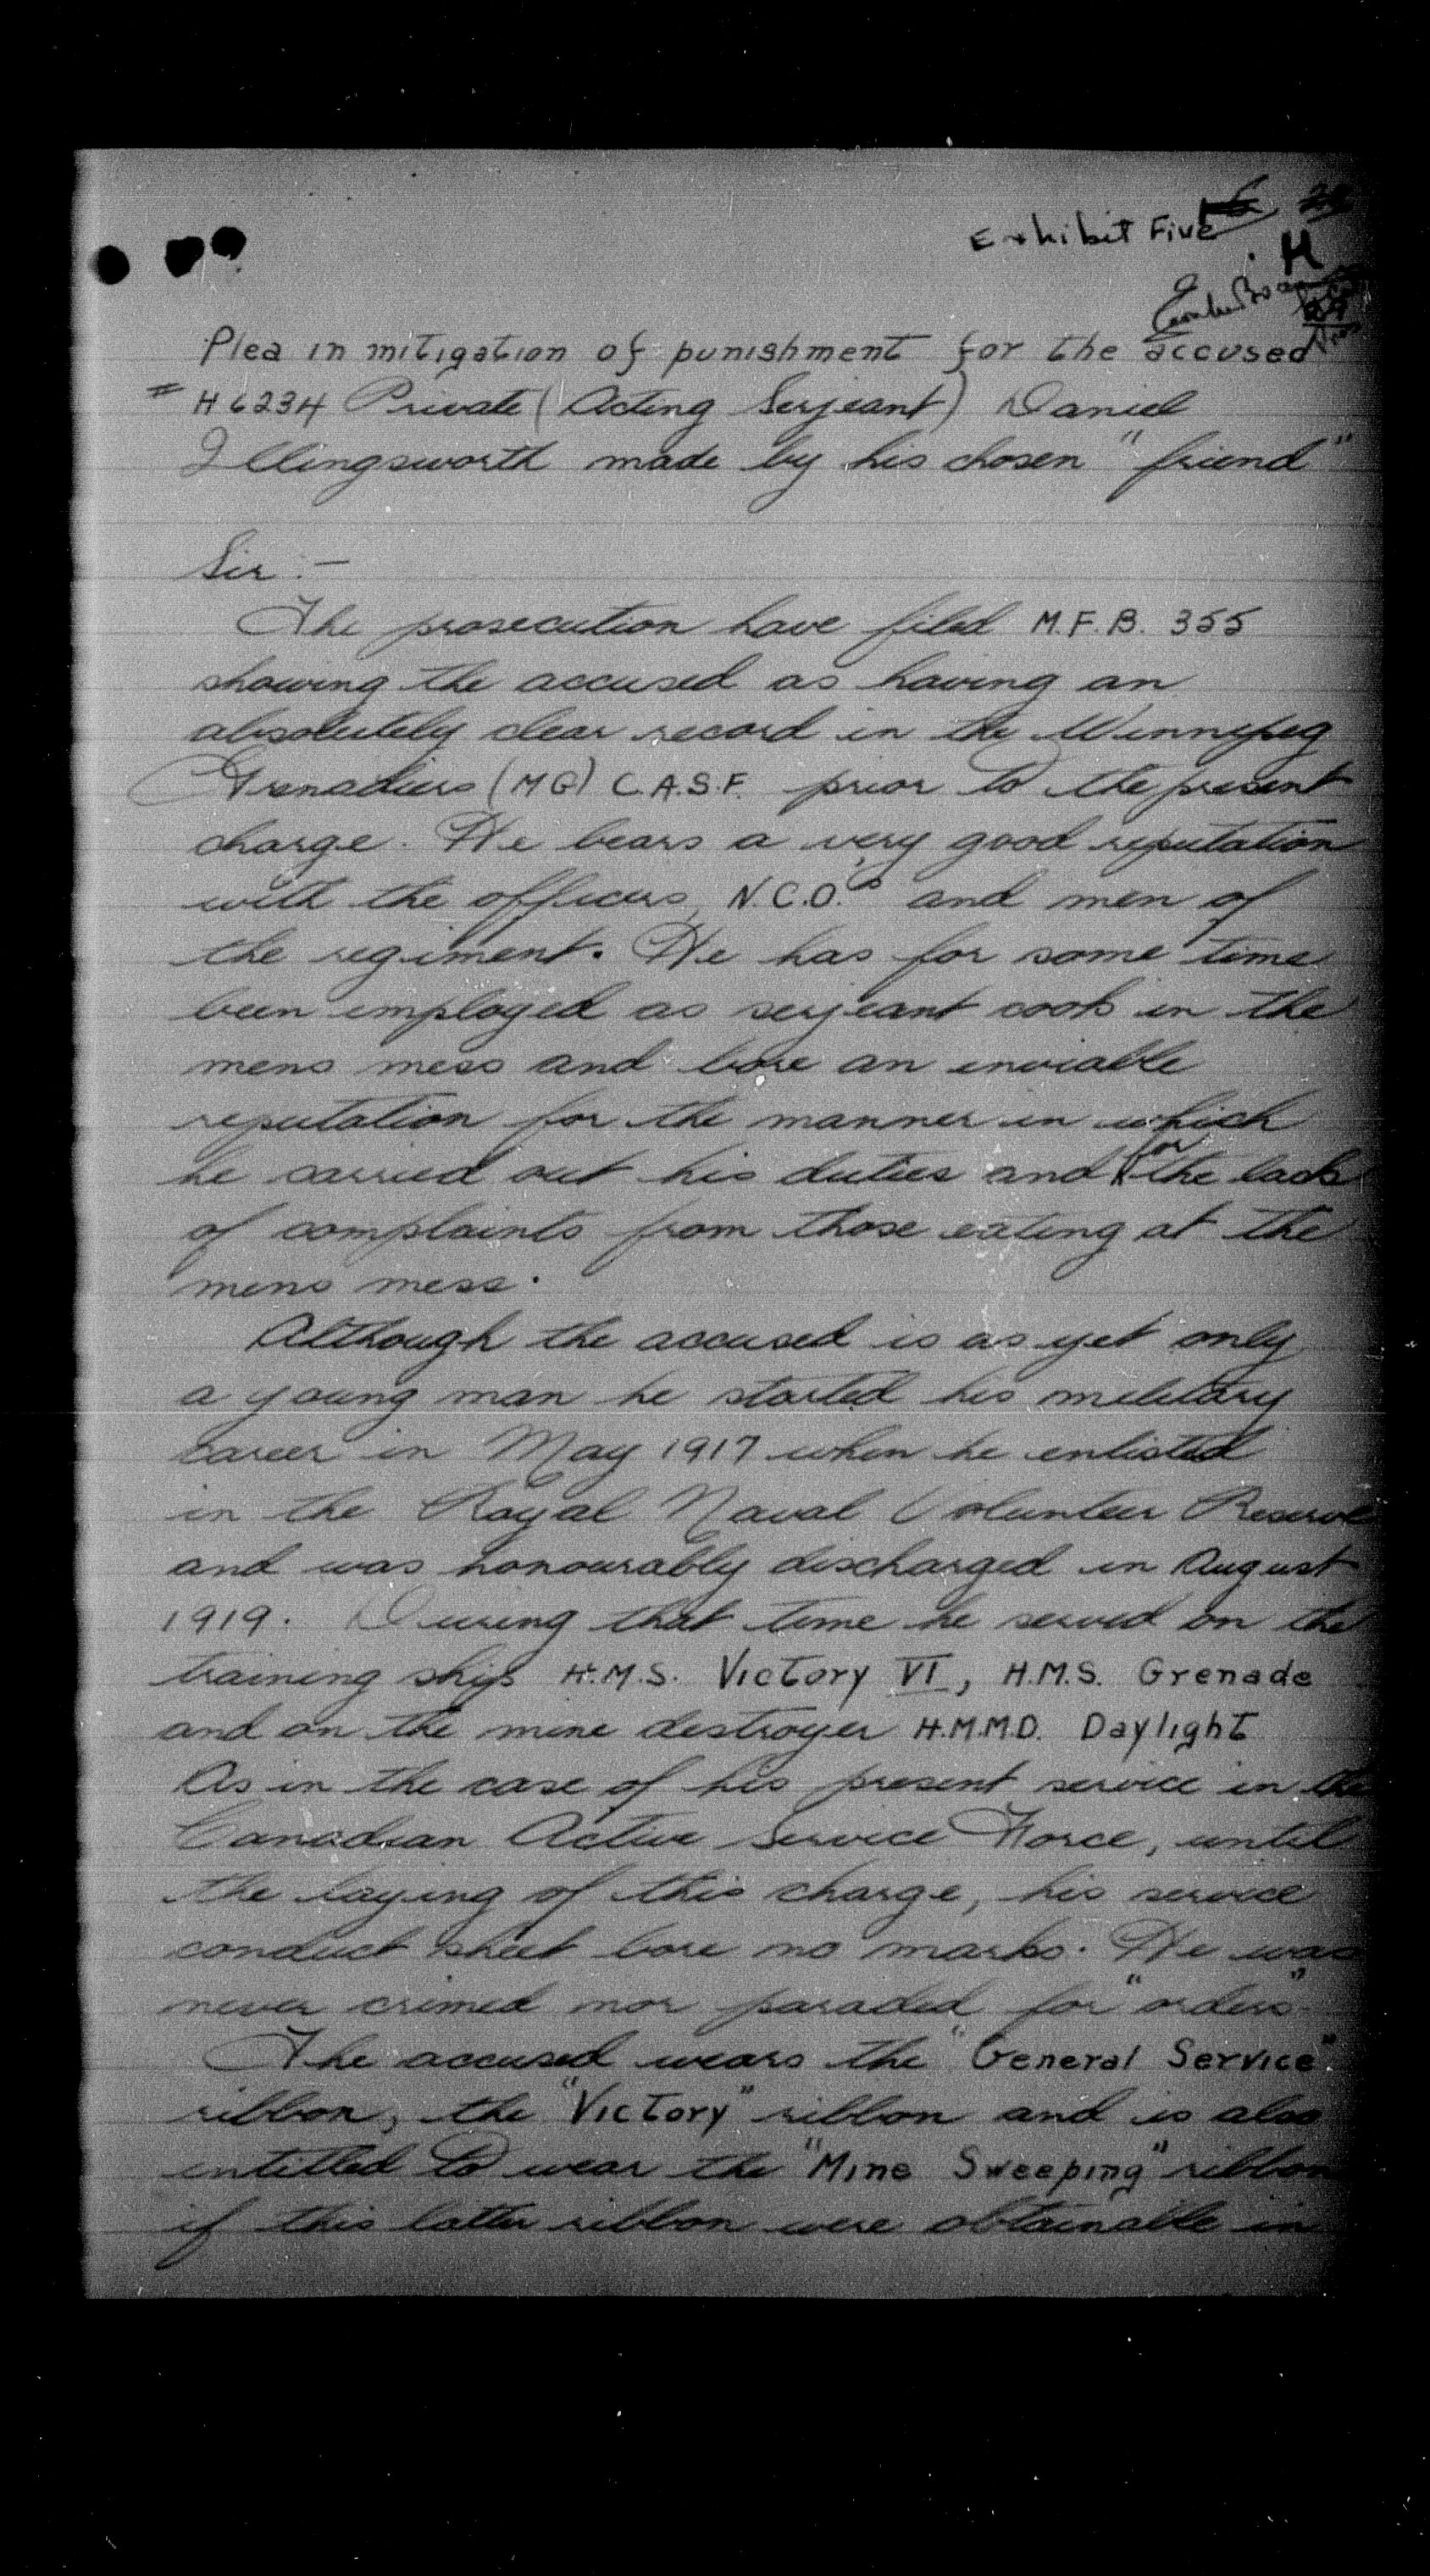 Exhibit Five
H
Plea in mitigation of punishment for the accused
# H6234 Private (Acting Serjeant) Daniel
Illingsworth made by his chosen "friend"
Sir :-
The prosecution have filed M.F.B. 355
showing the accused as having an
absolutely clear record in the Winnipeg
Grenadiers (MG) C.A.S.F. prior to the present
charge. He bears a very good reputation
with the officers, N.C.O.s and men of
the regiment. He has for some time
been employed as serjeant cook in the
mens mess and bore an enviable
reputation for the manner in which
he carried out his duties and for the lack
of complaints from those eating at the
mens mess.
Although the accused is as yet only
a young man he started his military
career in May 1917 when he enlisted
in the Royal Naval Volunteer Reserve
and was honourably discharged in August
1919. During that time he served on the
training ships H.M.S. Victory VI, H.M.S. Grenade
and on the mine destroyer H.M.M.D. Daylight
As in the case of his present service in the
Canadian Active Service Force, until
the laying of this charge, his service
conduct sheet bore no marks. He was
never crimed nor paraded for "orders".
The accused wears the "General Service"
ribbon, the "Victory" ribbon and is also
entitled to wear the "Mine Sweeping" ribbon
if this latter ribbon were obtainable in